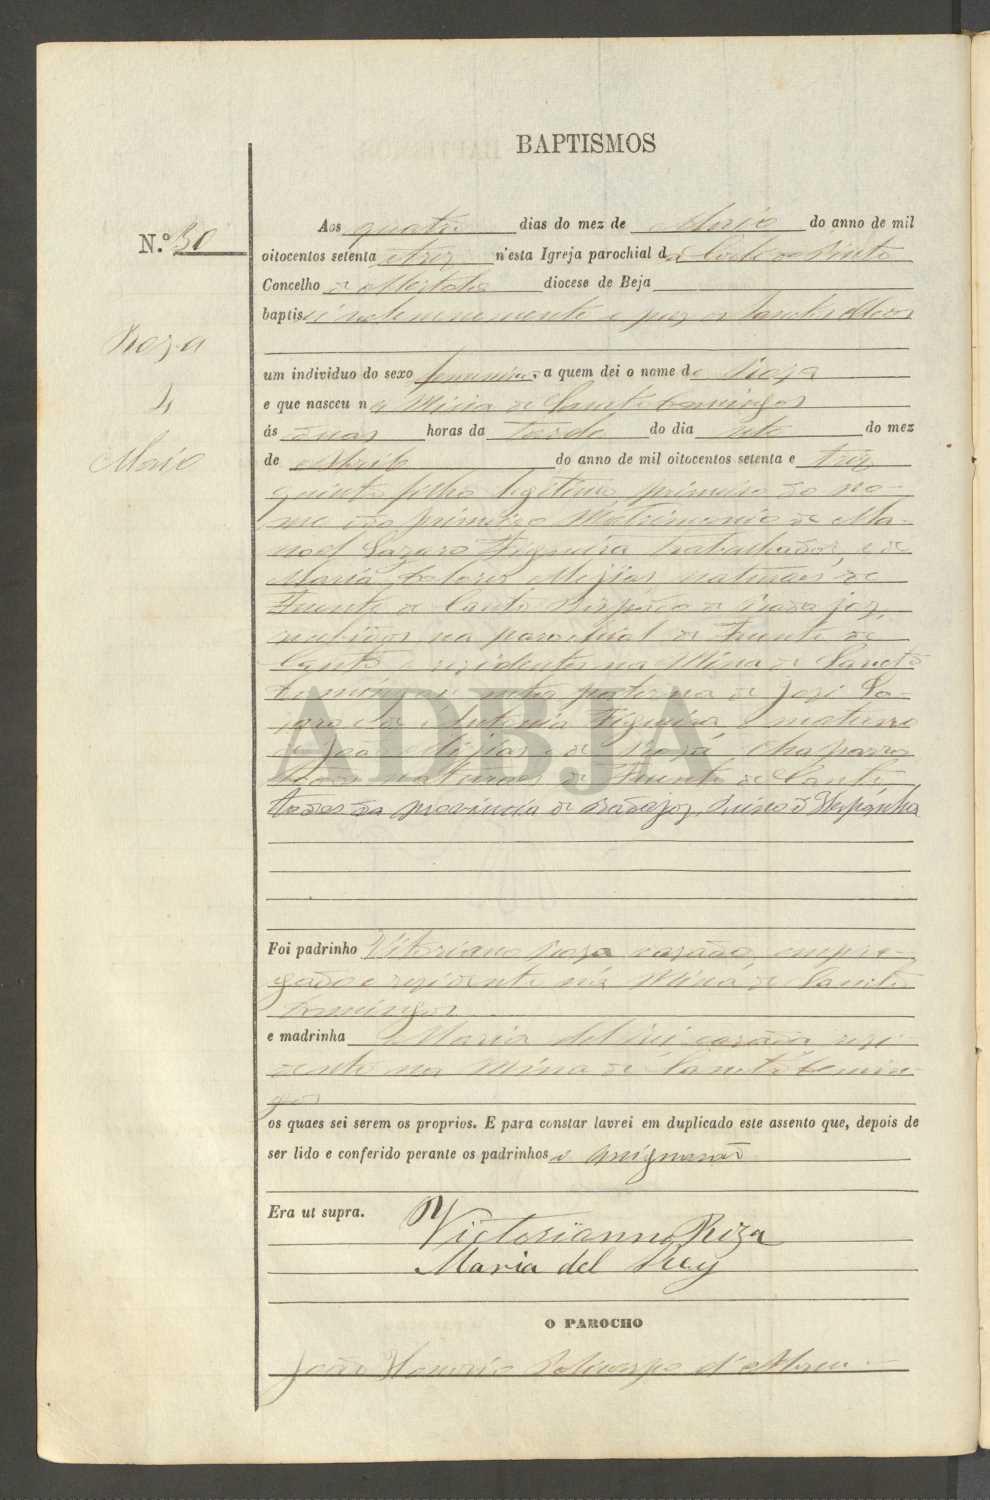 BAPTISMOS
N.º 30
Roza
4
Maio
Aos quatro dias do mez de Maio do anno de mil
oitocentos setenta e trez n'esta Igreja parochial da Corte do Pinto
Concelho de Mertola diocese de Beja
baptisei solemnemente e puz os Sanctos Oleos
um individuo do sexo femenino, a quem dei o nome de Roza
e que nasceu na Mina de Sancto Domingos
ás duas horas da tarde do dia sete do mez
de Abril do anno de mil oitocentos setenta e trez
quinto filho legitimo primeiro do no-
me do primeiro Matrimonio de Ma-
noel Lazaro Figueira trabalhador, e de
Maria Dolores Mejias naturaes de
Fuente de Cantos Bispado de Badajoz,
recebidos na parochial de Fuente de
Cantos e rezidentes na Mina de Sancto
Domingos neta paterna de José La-
zaro e de Antonia Figueira e materna
de João Mejias e de Roza Chaparro
todos naturaes de Fuente de Cantos,
todos da provincia de Badajoz, Reino d'Hespanha
Foi padrinho Vitoriano Roza cazado, empre-
gado e rezidente na Mina de Sancto
Domingos
e madrinha Maria del Rei cazada rezi
dente na Mina de Sancto Domin-
gos
os quaes sei serem os proprios. E para constar lavrei em duplicado este assento que, depois de
ser lido e conferido perante os padrinhos o assignarão
Era ut supra.
Victorianno Roza
Maria del Rey
O PAROCHO
João Honorio Policarpo d'Abreu